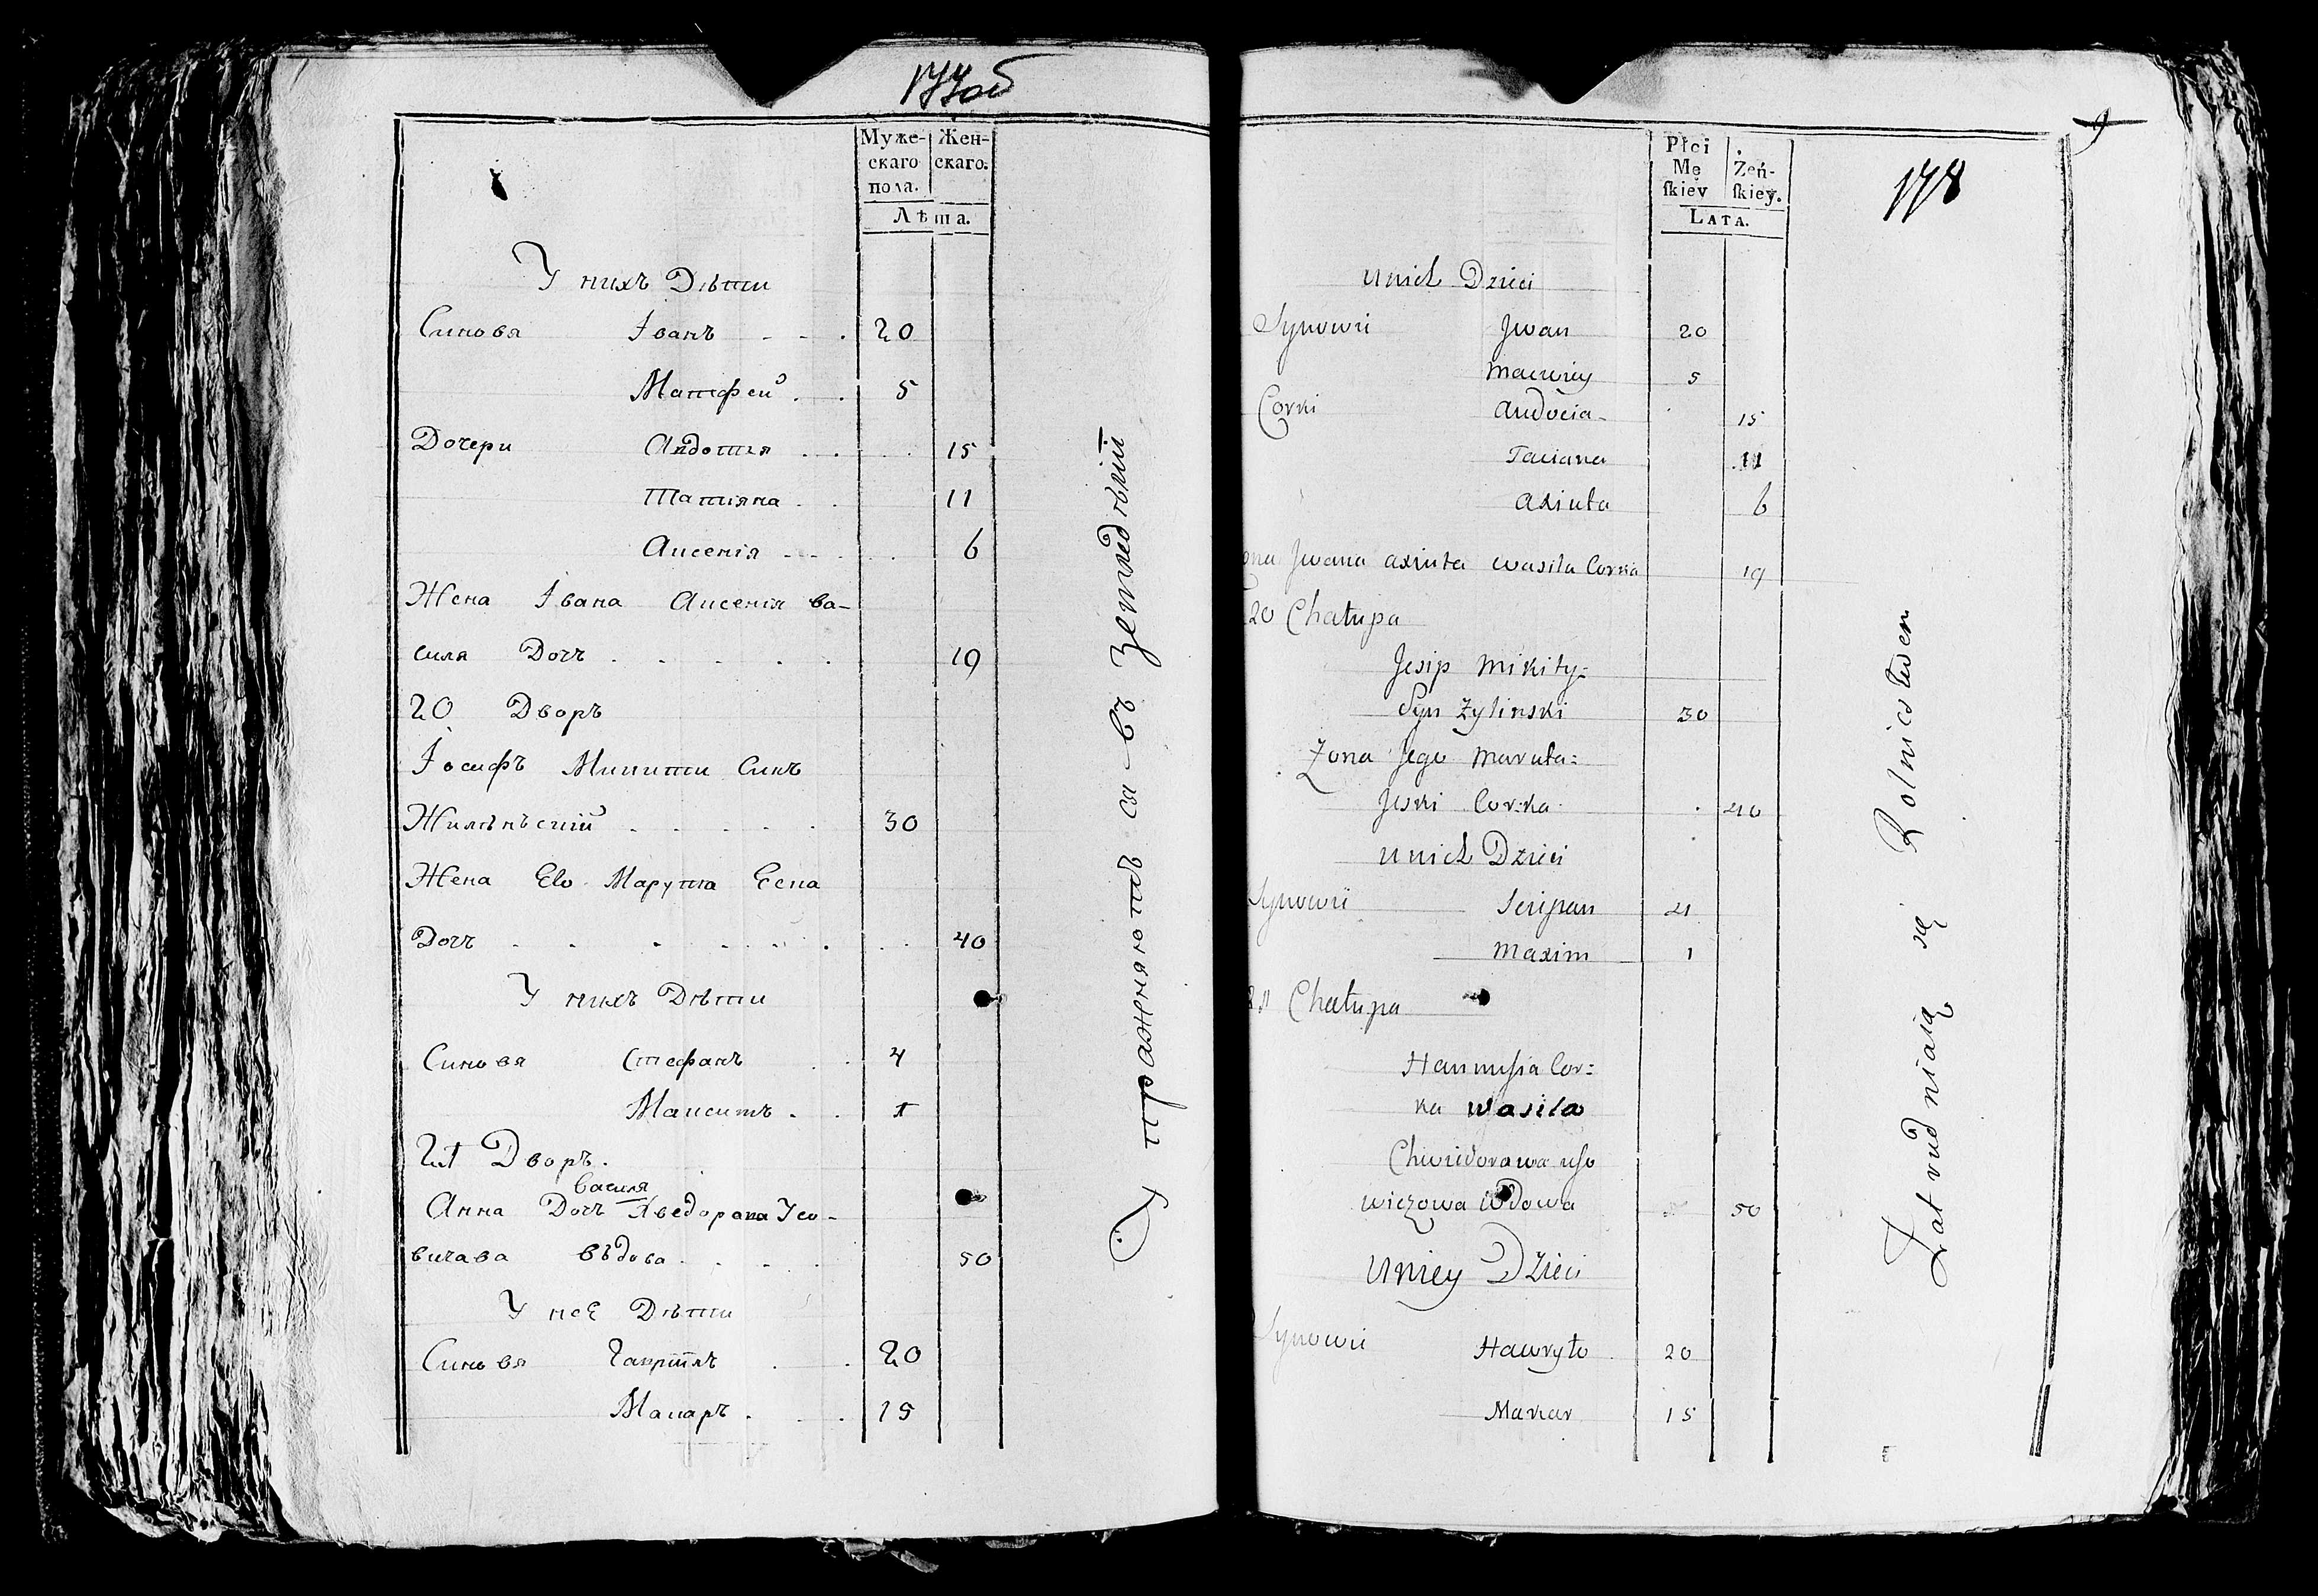 177об
Муже-
скаго
пола.
Жен-
скаго.
Лѣта.
У нихъ Дѣти
Синовя Іванъ 20
Матфей 5
Дочери Авдотия 15
Татияна 11
Аксенія 6
Жена Івана Аксенія ва-
силя Дочъ 19
20 Дворъ
Іосифъ Микити Синъ
Жилѣнъский 30
Жена Его Марута Еска
Дочъ 40
У нихъ Дѣти
Синовя Стефанъ 4
Максимъ 1
21 Дворъ.
василя
Анна Дочъ Хведорава Усо-
вичава въдова 50
У неѣ Дѣти
Синовя Гаврiилъ 20
Макаръ 15
Упражняютъ ся въ Земледѣлiи
9
178
Płci
Mę
ſkiey
Żeń-
ſkiey.
Lata.
U nich Dzieci
Synowie Jwan 20
Maciwiey 5
Corki Audocia 15
Taciana 11
Axiuta 6
ona Jwana axiuta wasila Corka 19
20 Chałupa
Jesip Mikity-
Syn Zylinski 30
Zona Jego Maruta=
Jeski Corka 40
U nich Dzieci
Synowie Scripan 4
Maxim 1
21 Chałupa
Hannuſia Cor=
ka wasila
Chwidorawa uſo
wiczowa Wdowa 50
U niey Dzieci
Synowie Hawryło 20
Makar 15
Zatrudniaią się Rolnictwem